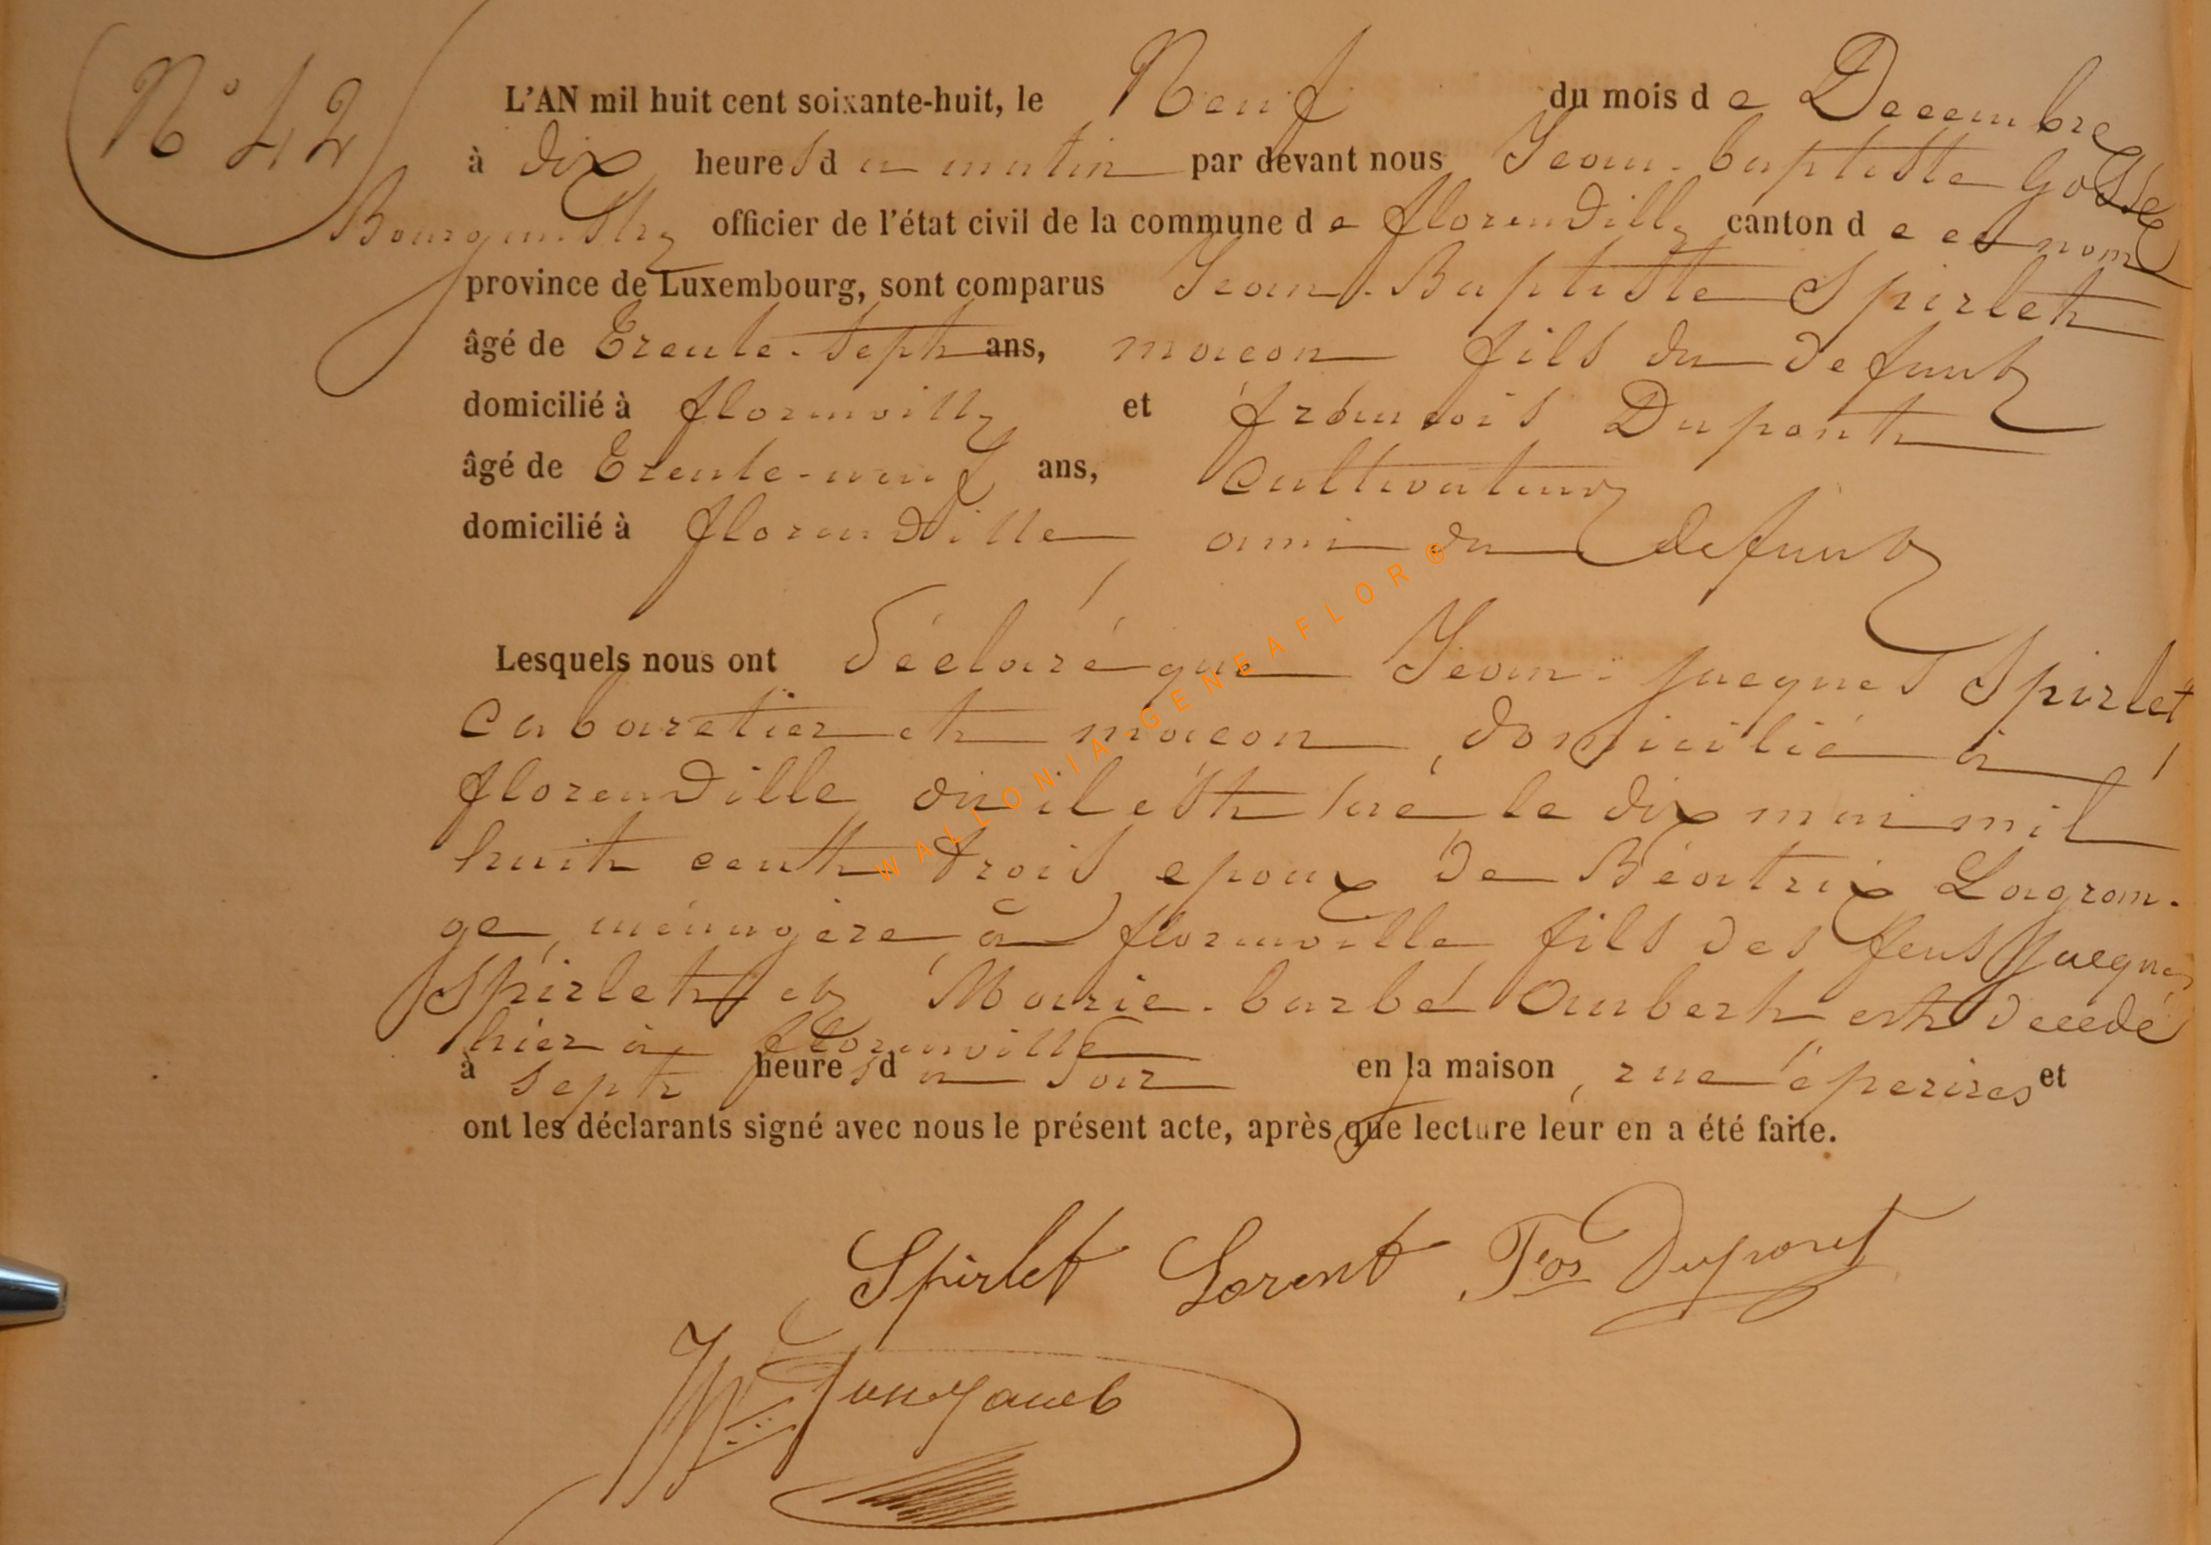 N° 42
L'AN mil huit cent soixante-huit, le Neuf du mois de Decembre
à dix heures du matin par devant nous Jean-baptiste Gosse
Bourgmestre officier de l'état civil de la commune de florenville canton de ce nom
province de Luxembourg, sont comparus Jean-Baptiste Spirlet
âgé de Trente-sept ans, macon fils du defunt
domicilié à florenville et françois Dupont
âgé de Trente-neuf ans, cultivateur
domicilié à florenville, ami du defunt
Lesquels nous ont déclaré que Jean-Jacques Spirlet
cabaretier et macon, domicilié à
florenville, où il est né le dix mai mil
huit cent trois, epoux de Béatrix Lagran-
ge, ménagère, à florenville fils des feus Jacques
Spirlet et Marie-barbe Aubert est decedé
hier à florenville
à sept heures du soir en la maison, rue éperires et
ont les déclarants signé avec nous le présent acte, après que lecture leur en a été faite.
Spirlet Lorent Fçois Dupont
WALLONIA-GENEAFLOR®